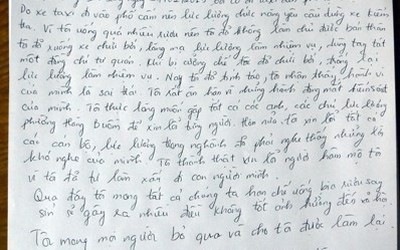 Do xe taxi đi vào phố cấm nên lực lượng chức năng yêu cầu dừng xe kiểm
tra. Vì tôi uống quá nhiều rượu nên tôi đã không làm chủ được bản thân
tôi đã xuống xe chửi bới, lăng mạ lực lượng làm nhiệm vụ, dùng tay tát
một đồng chí tự quản. Khi bị cưỡng chế tôi đã chửi bới, chống lại
lực lượng làm nhiệm vụ. Nay tôi đã tỉnh táo, tôi nhận thấy hành vi
của mình là sai trái. Tôi rất ân hận vì những hành động mất kiểm soát
của mình. Tôi thực lòng muốn gặp tất cả các anh, các chú lực lượng
phường Hàng Buồm để xin lỗi từng người. Hơn nữa tôi xin lỗi tất cả
các cán bộ, lực lượng trong nghành đã phải nghe thấy những lời
khó nghe của mình. Tôi thành thật xin lỗi người hâm mộ tôi
vì tôi đã tự làm xấu đi con người mình.
Qua đây tôi mong tất cả chúng ta hạn chế uống bia rượu say
sỉn sẽ gây ra nhiều điều không tốt ảnh hưởng đến xã hội.
Tôi mong mọi người bỏ qua và cho tôi được làm lại